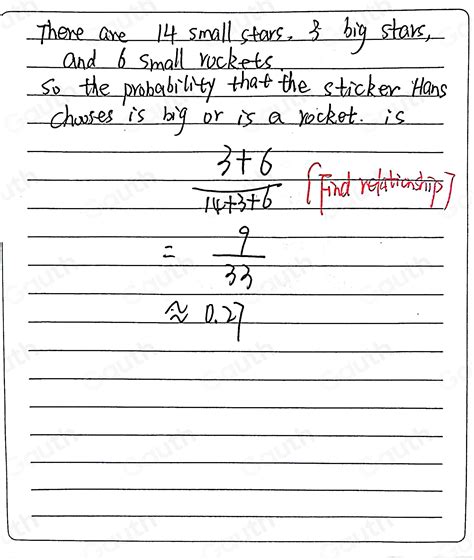 There are 14 small stars, 3 big stars,
and 6 small rockets.
So the probability that the sticker Hans
Chooses is big or is a rocket. is
3+6
14+3+6
[Find relationship]
= 9
33
≈ 0.27